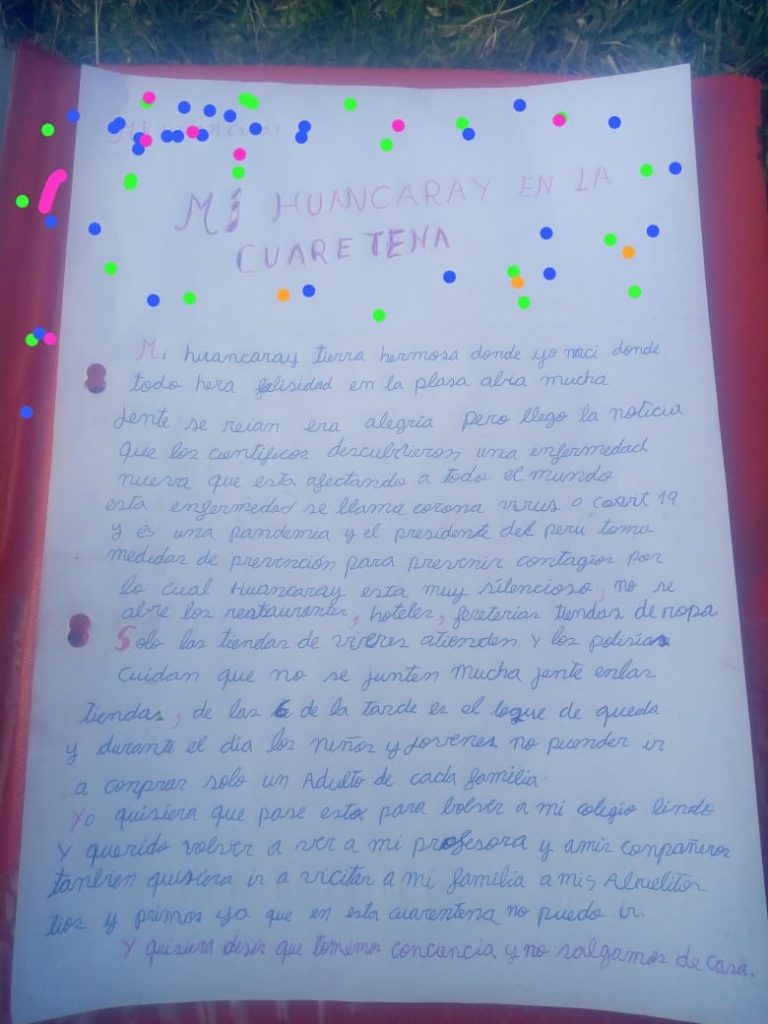 MI HUANCARAY EN LA
CUARETENA
Mi huancaray tierra hermosa donde yo naci donde
todo hera felisidad en la plasa abia mucha
jente se reian era alegría pero llego la noticia
que los cientificos descubrieron una enfermedad
nueva que esta afectando a todo el mundo
esta enfermedad se llama corona virus o covit 19
y es una pandemia y el presidente del peru tomo
medidas de prevención para prevenir contagios por
lo cual Huancaray esta muy silencioso, no se
abre los restaurantes, hoteles, fereterias tiendas de ropa
Solo las tiendas de viveres atienden y los polisias
cuidan que no se junten mucha jente enlas
tiendas, de las 6 de la tarde es el toque de queda
y durante el día los niños y jovenes no pueder ir
a comprar solo un Adulto de cada familia.
Yo quisiera que pase esto para bolver a mi colegio lindo
y querido volver a ver a mi profesora y amis compañeros
tanbien quisiera ir a vicitar a mi familia a mis Abuelitos
tios y primos ya que en esta cuarentena no puedo ir.
Y quisiera desir que tomemos conciencia y no salgamos de casa.